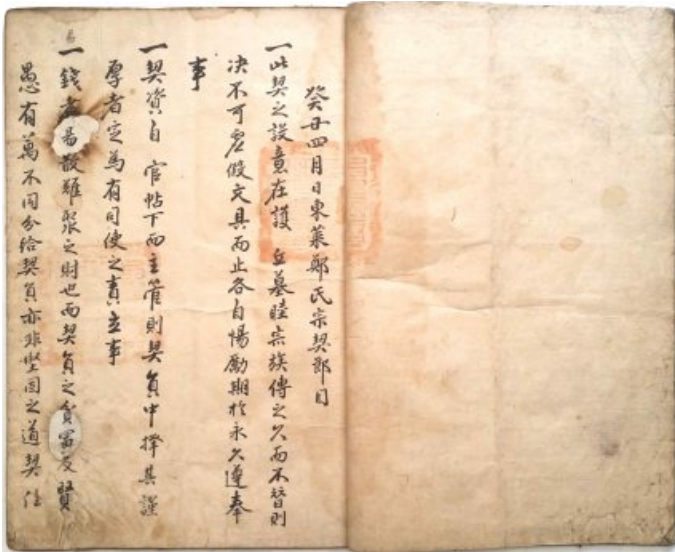 癸丑四月日東萊鄭氏宗契節目
一此契之設意在護 丘墓睦宗族傳之久而不替則
決不可虛假文具而止各自惕勵期於永久遵奉
事
一契資自 官帖下而主管則契員中擇其謹
厚者定為有司使之責立事
一錢者易散難聚之財也而契員之貧富及賢
愚有萬不同分給契員亦非堅固之道契任